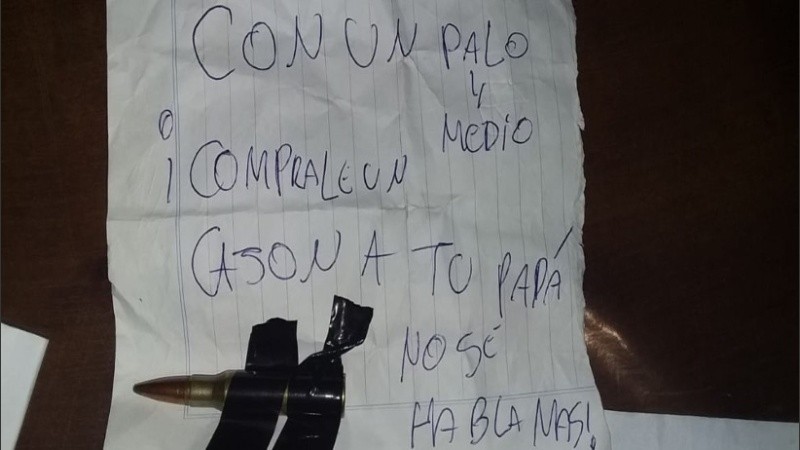 CON UN PALO
Y
MEDIO
¡COMPRALE UN
CASON A TU PAPÁ
NO SÉ
HABLA MAS!